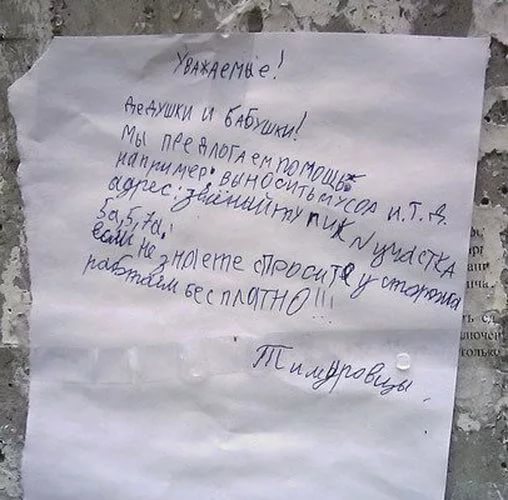 Уважаемые!
дедушки и бабушки!
Мы предлогаем помощь:
например: выносить мусор и.т.д.
адрес: пик N участка
5а,5,7а,
если не знаете спросите у сторожа
работаем бесплатно!!!
Тимуровцы.